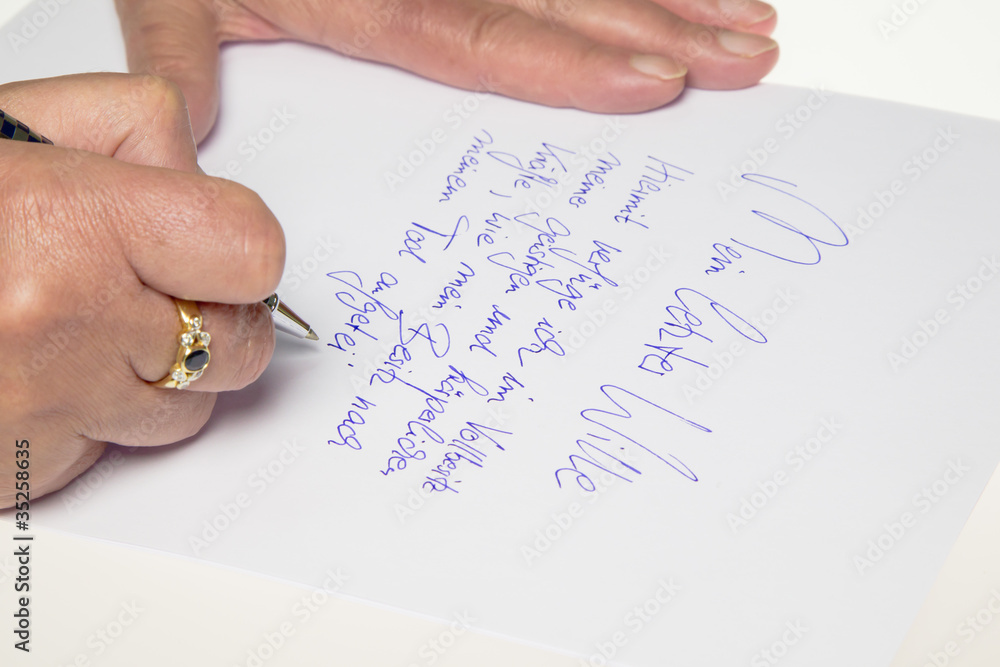 Mein letzter Wille
Hiermit verfüge ich im Vollbesitz
meiner geistigen und körperlicher
Kräfte, wie mein Besitz nach
meinem Tod aufgetei
Adobe Stock | #35258635